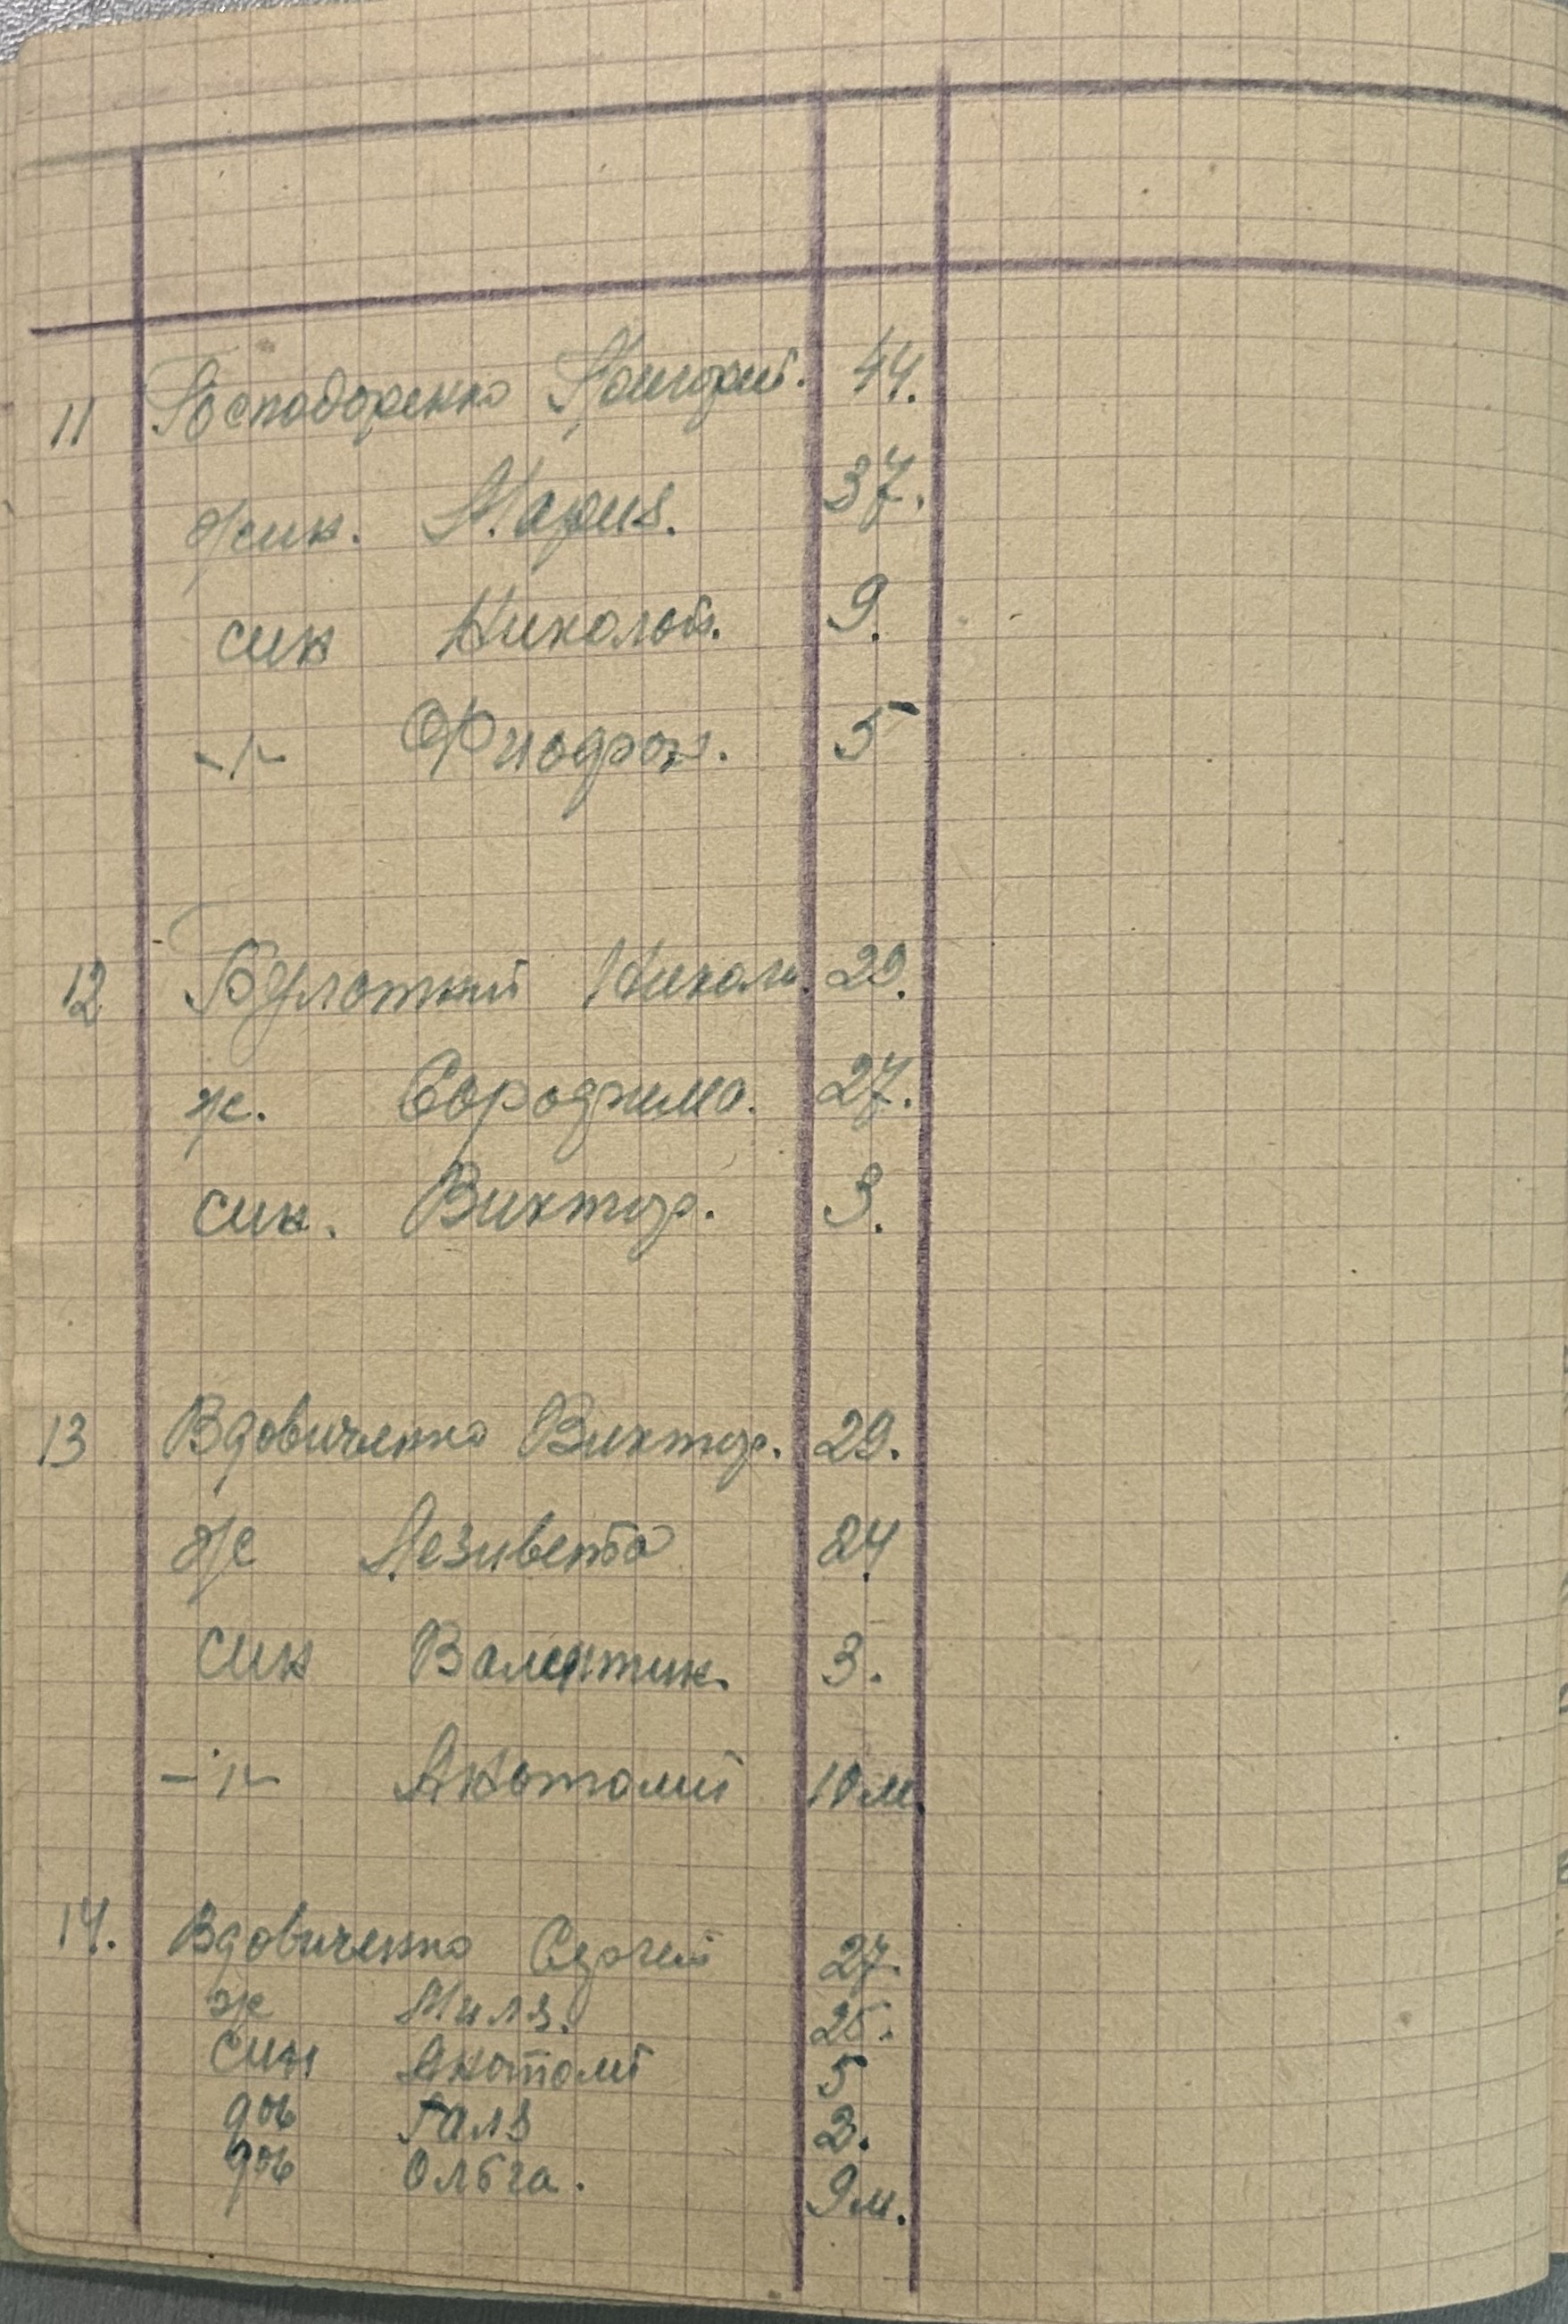 11 Господоренко Григорий. 44.
жин. Мария. 37.
син Николай. 9.
-"- 5
12 Николи. 29.
ж. 27.
син. Виктор. 3.
13 Вдовиченко Виктор. 29.
ж Лезивета 24
син Валентин. 3.
-"- Анатолий 10 м.
14. Вдовиченко Сергей 27.
ж Миля. 25.
син Анатолий 5
доч Галя 2.
доч Ольга. 9 м.